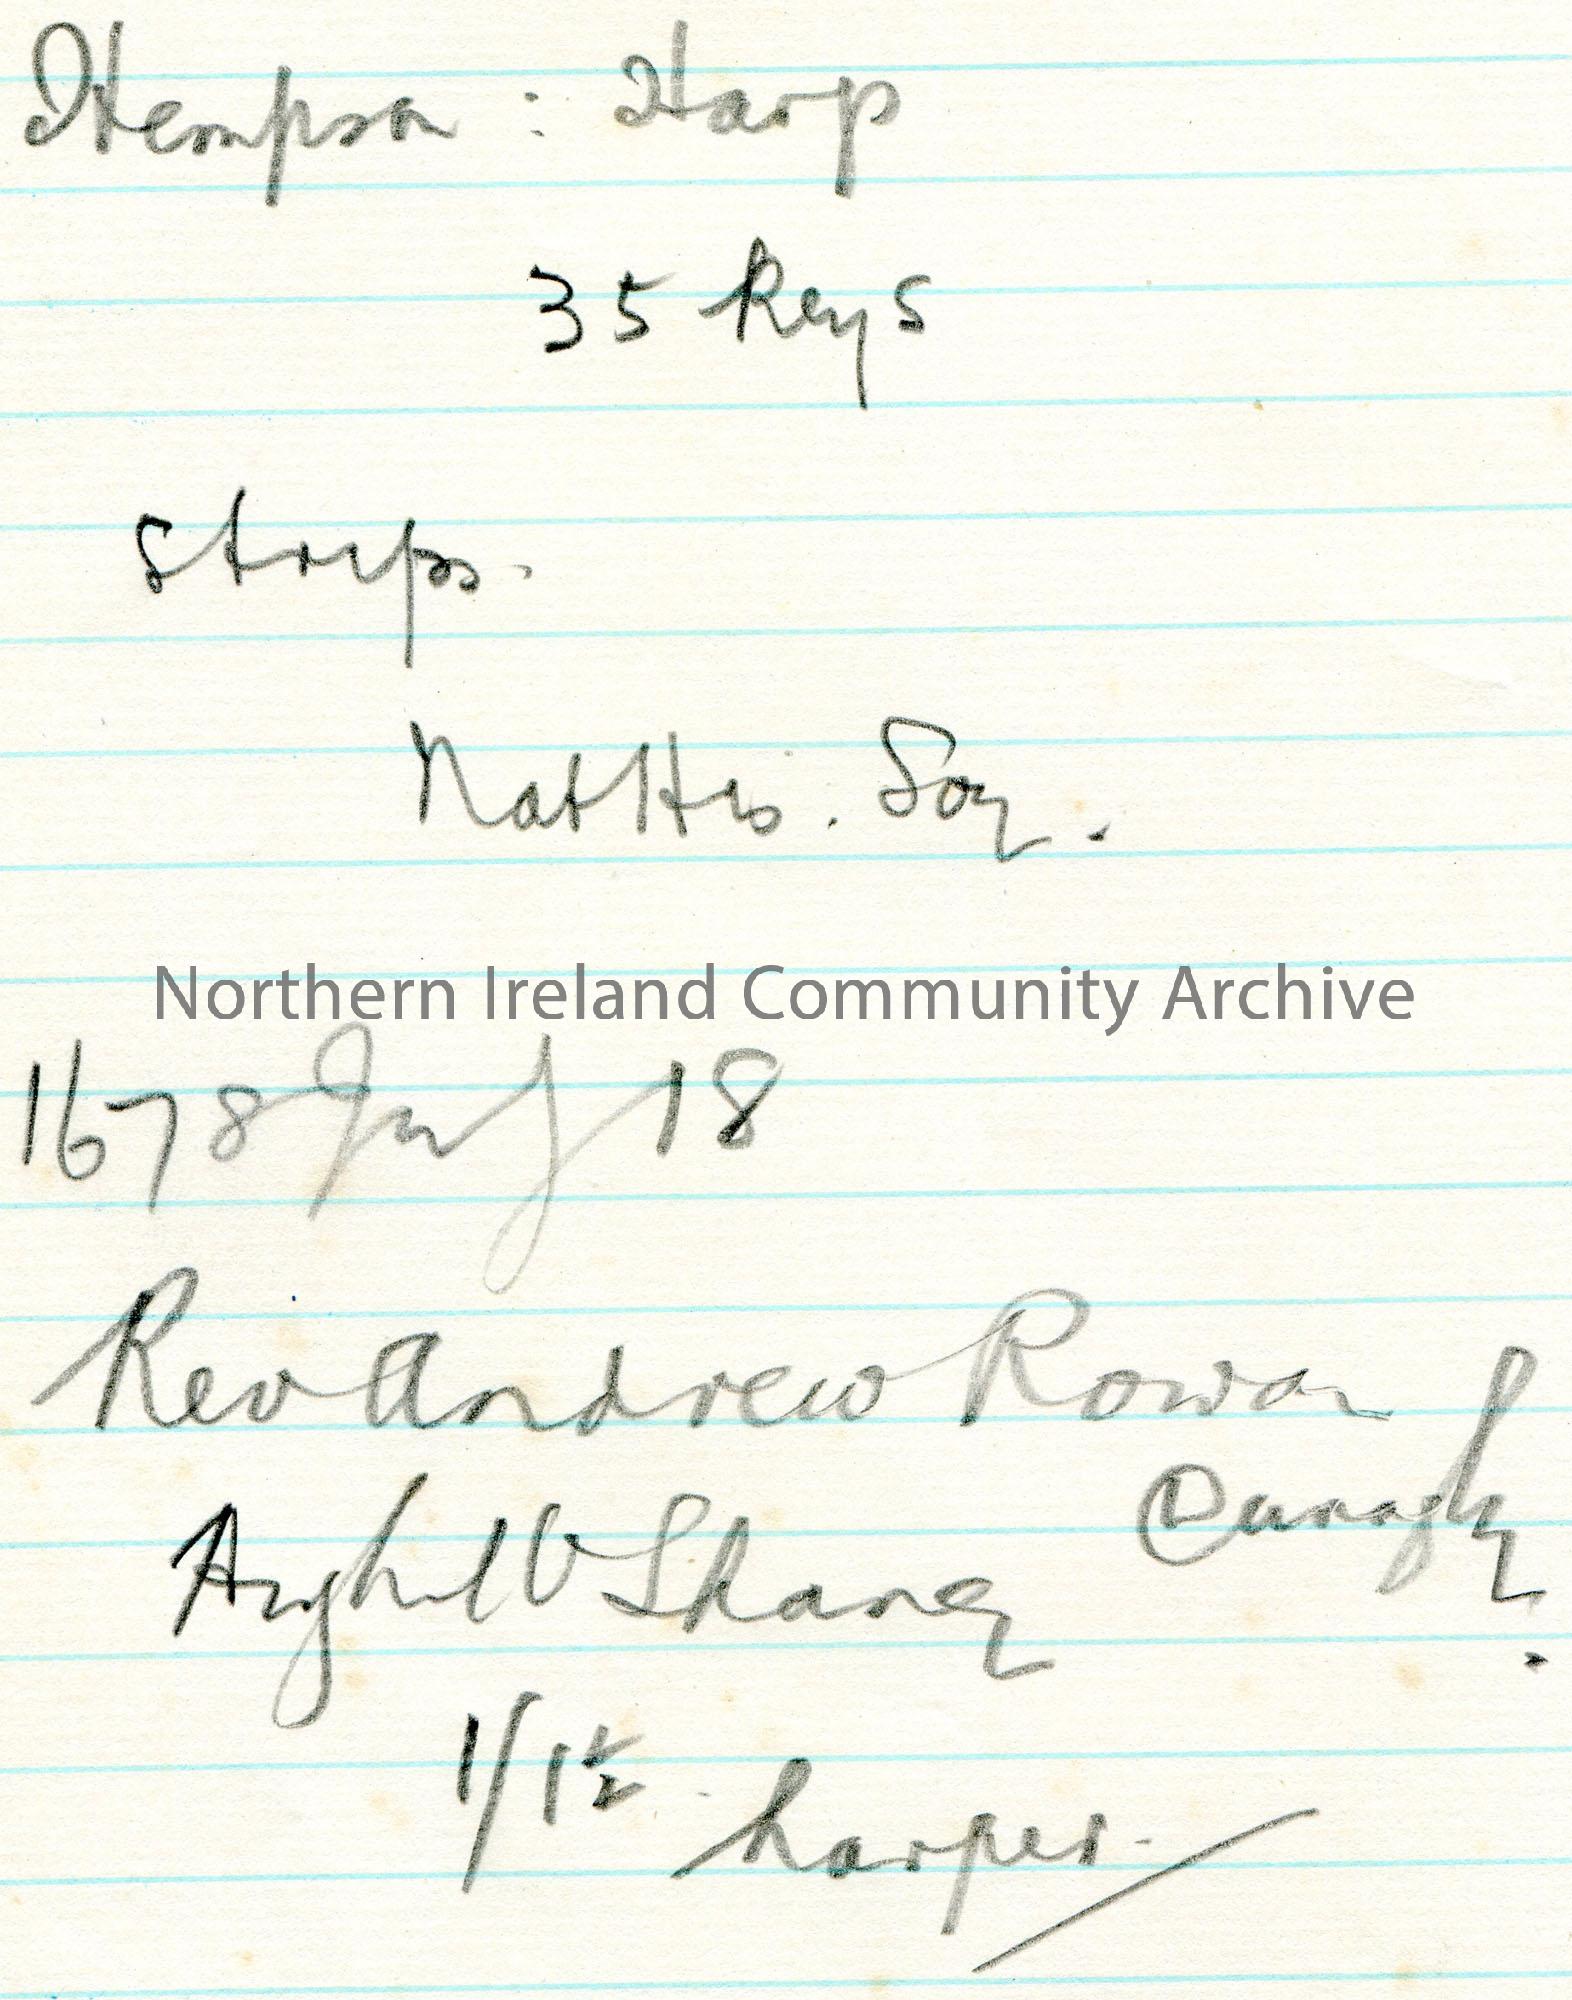 Hempson : Harp
35 Keys
strips.
Nat His. Soy.
Northern Ireland Community Archive
1678 July 18
Rev Andrew Rowan
O Shane
1/1½ harper.